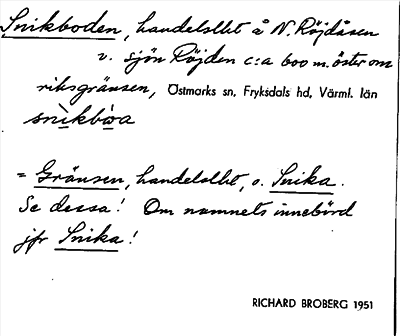 Snikboden, handelsllht å N. Röjdåsen
v. sjön Röjden c:a 600 m. öster om
riksgränsen, Östmarks sn, Fryksdals hd, Värml. län
snìkbòa
= Gränsen, handelsllht, o. Snika.
Se dessa! Om namnets innebörd
jfr Snika!
RICHARD BROBERG 1951